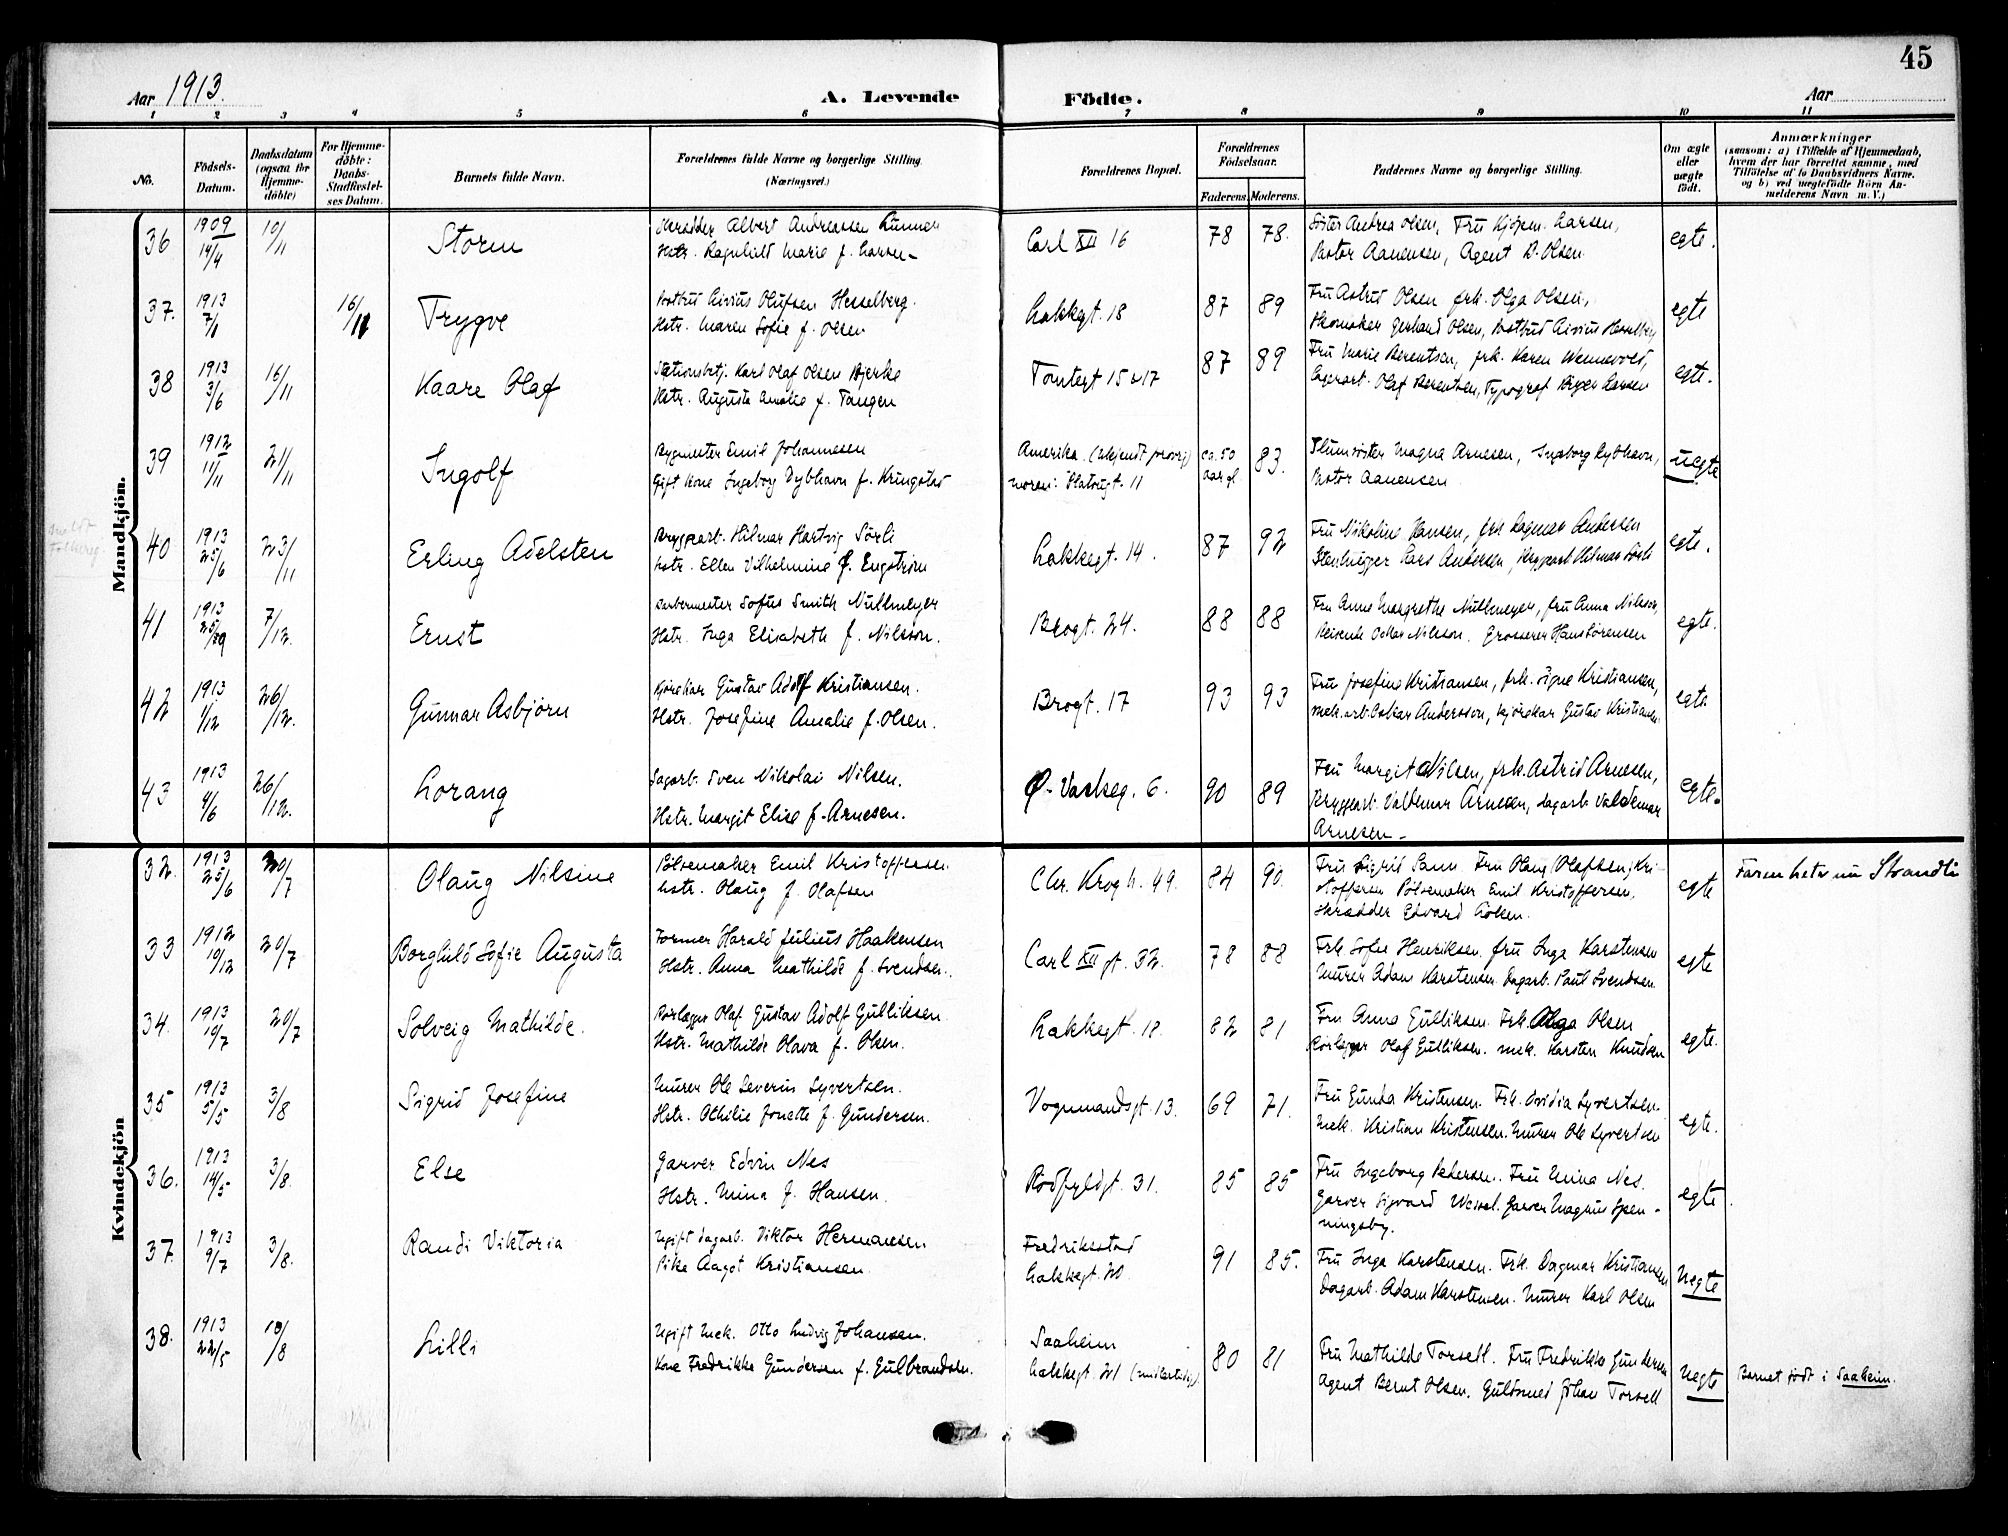 45
Aar 1913.
A. Levende Födte.
Aar
1 2 3 4 5 6 7 8 9 10 11
No.
Födsels-
Datum.
Daabsdatum
(ogsaa for
Hjemme-
döbte)
For Hjemme-
döbte:
Daabs-
Stadfæstel-
ses Datum.
Barnets fulde Navn.
Forældrenes fulde Navne og borgerlige Stilling.
(Næringsvei.)
Forældrenes Bopæl.
Forældrenes
Födselsaar.
Faderens Moderens.
Faddernes Navne og borgerlige Stilling.
Om ægte
eller
uægte
födt.
Anmærkninger
(saasom: a) i Tilfælde af Hjemmedaab,
hvem der har forrettet samme, med
Tilföielse af to Daabsvidners Navne.
og b) ved uægtefödte Börn An-
melderens Navn m. V.)
Mandkjön.
36 1909 14/4 10/11 Storm
Skrædder Albert Andreassen Lunner
Hstr. Ragnhild Marie f. Larsen
Carl XII 16 78 78.
Söster Andrea Olsen, Fru Hjörn. Larsen,
Pastor Aanensen, Agent D. Olsen
egte.
37. 1913 7/1 16/11 Trygve
Postbud Sivius Olufsen Hesselberg.
Hstr. Maren Sofie f. Olsen
Lakkegt. 18 87 89
Fru Astrid Olsen frk. Olga Olsen,
Skomaker Gerhard Olsen, Postbud Sivius Hesselberg
egte
38 1913 3/6 16/11 Kaare Olaf
Stationsbetj. Karl Olaf Olsen Bjerke
Hstr. Augusta Amalie f. Tangen
Tomtegt 15 & 17 87 89
Fru Marie Berentsen, frk. Karen Wennevold,
Lagerarb. Olaf Berentsen, Typograf Birger Larsen
egte.
39 1912 11/11 21/11 Ingolf
Bygmester Emil Johannesen
Gift Kone Ingeborg Dybhavn f. Kringstad
Amerika. (ukjendt forövrig)
moren: Platougt. 11
ca. 50
aar gl. 83.
Slumsöster Magna Arnesen, Ingeborg Dybhavn,
Pastor Aanensen
uegte
40 1913 25/6 23/11 Erling Adelsten
Bryggearb. Hilmar Hartvig Sörli
hstr. Ellen Vilhelmine f. Engström
Lakkegt. 14. 87 92
Fru Nikoline Hansen, frk Dagmar Andersen
Stenhugger Lars Andersen, Bryggearb Hilmar Sörli
egte.
41 1913 25/9 7/12. Ernst
Farbermester Sofus Smith Nullmeyer
Hstr. Inga Elisabeth f. Nilsson.
Brogt. 24. 88 88
Fru Anne Margrethe Nullmeyer, fru Anna Nilsson,
Reisende Oskar Nilsson. Grosserer Hans Sörensen
egte.
42 1913 1/12 26/12. Gunnar Asbjörn
Kjörekar Gustav Adolf Kristiansen.
Hstr. Josefine Amalie f. Olsen.
Brogt. 17 93 93
Fru Josefine Kristiansen, frk. Signe Kristiansen,
mek. arb. Oskar Andersson, Kjörekar Gustav Kristiansen
egte.
43 1913 4/6 26/12. Lorang
Dagarb. Sven Nikolai Nilsen.
Hstr. Margit Elise f. Arnesen.
Ø. Vaskeg. 6. 90 89
Fru Margit Nilsen, frk. Astrid Arnesen,
Bryggearb. Valdemar Arnesen, dagarb Valdemar
Arnesen
egte.
Kvindekjön
32. 1913 25/6 20/7 Olaug Nilsine
Bölsemaker Emil Kristoffersen
hstr. Olaug f. Olafsen
Chr. Krogh. 49. 84 90.
Fru Sigrid Sann Fru Olaug Olafsen Kri-
stoffersen Pölsemaker Emil Kristoffersen.
Skrædder Edvard
egte
Faren heter nu Strandli
33 1912 10/12 20/7 Borghild Sofie Augusta
Former Harald Julius Haakensen
Hstr. Anna Mathilde f. Svendsen.
Carl XII gt. 32. 78 88
Frk Sofie Henriksen. fru Inga Karstensen
Murer Adam Karstensen Dagarb. Paul Svendsen.
egte
34. 1913 10/7 20/7 Solveig Mathilde.
Rörlægger Olaf Gustav Adolf Gulliksen.
Hstr. Mathilde Olava f. Olsen.
Lakkegt. 18. 82 81
Fru Anna Gulliksen. Frk. Olga Olsen
Rörlægger Olaf Gulliksen. mek. Karsten Knudsen
egte.
35 1913 5/5 3/8 Sigrid Josefine
Murer Ole Severin Syvertsen.
Hstr. Othilie Jonette f. Gundersen.
Vognmandsgt. 13. 69 71.
Fru Gunda Kristensen. Frk. Ovidia Syvertsen.
Mek. Kristian Kristensen. Murer Ole Syvertsen
egte.
36. 1913 14/5 3/8. Else
Garver Edvin Nes
Hstr. Mina f. Hansen.
Rödfyldgt. 31. 85 85
Fru Ingeborg Pedersen. Fru Mina Nes.
Garver Sigvard Wessel. Garver Magnus Spen-
ningsby.
egte.
37. 1913 9/7 3/8. Randi Viktoria
Ugift dagarb. Viktor Hermansen
Pike Aagot Kristiansen.
Fredriksstad
Lakkegt. 20. 91 85.
Fru Inga Karstensen. Frk. Dagmar Kristiansen
Dagarb. Adam Karstensen. Murer Karl Olsen
Uegte
38. 1913 22/5 10/8 Lilli
Ugift Mek. Otto Ludvig Johansen.
Kone Fredrikke Gundersen f. Gulbrandsen.
Saaheim
Lakkegt. 21 (midlertidigt) 80 81
Fru Mathilde Torsell. Fru Fredrikke Gundersen
Agent Bernt Olsen. Guldsmed Johan Torsell
Uegte
Barnet födt i Saaheim.